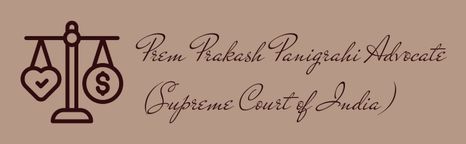 Prem Prakash Panigrahi Advocate
(Supreme Court of India)
$